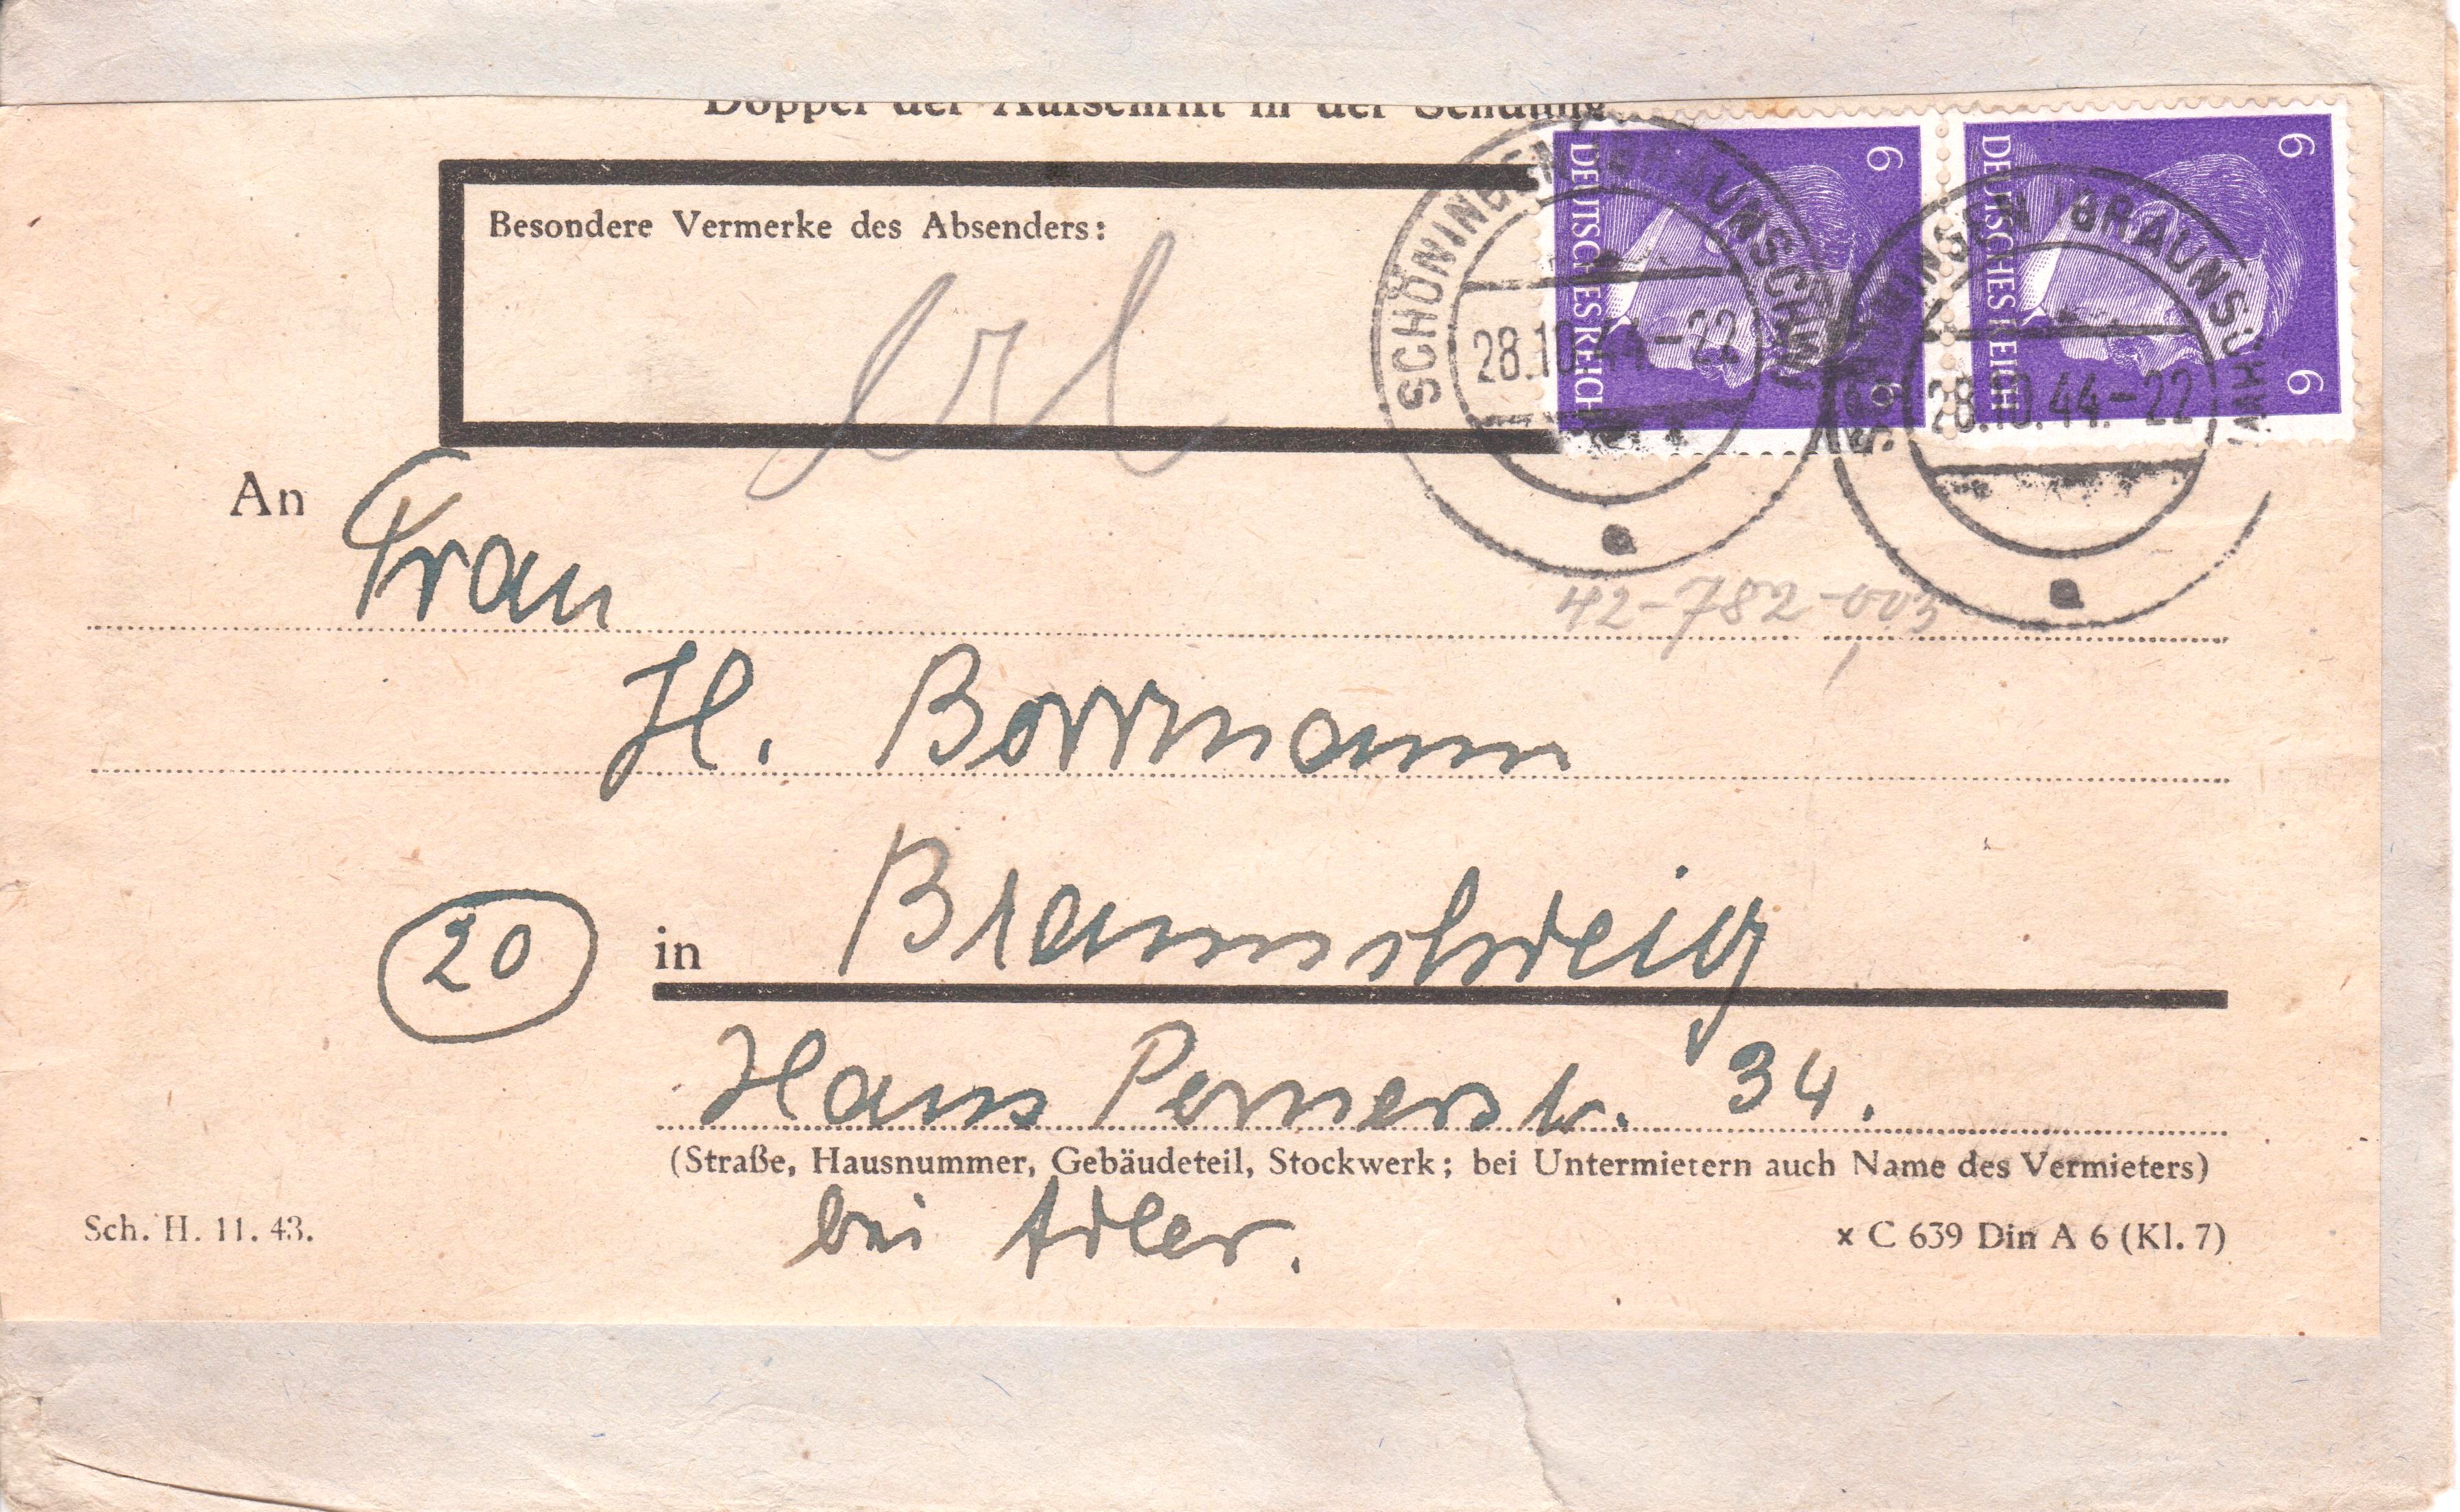 Doppel der Aufschrift in der Sendung
Besondere Vermerke des Absenders:
erl
DEUTSCHES REICH
6
6
DEUTSCHES REICH
6
6
SCHÖNINGEN (BRAUNSCHW)
28.10.44.-22
a
SCHÖNINGEN (BRAUNSCHW)
28.10.44.-22
a
An
Frau
42-782-003
H. Borrmann
20
in
Braunschweig
Hans Pernerstr. 34.
(Straße, Hausnummer, Gebäudeteil, Stockwerk; bei Untermietern auch Name des Vermieters)
bei Adler.
Sch. H. 11. 43.
x C 639 Din A 6 (Kl. 7)